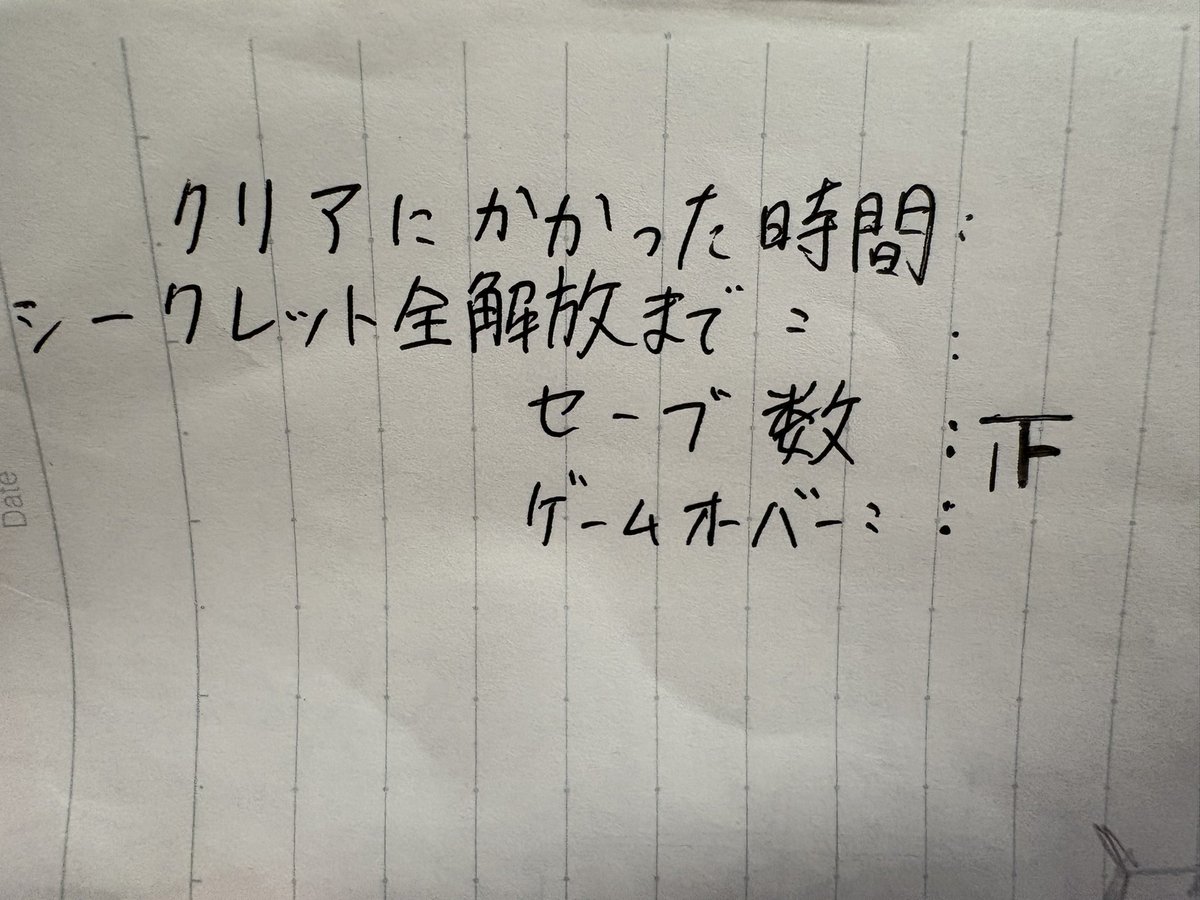 クリアにかかった時間:
シークレット全解放まで: :
セーブ数 :正
ゲームオーバー: :
Date